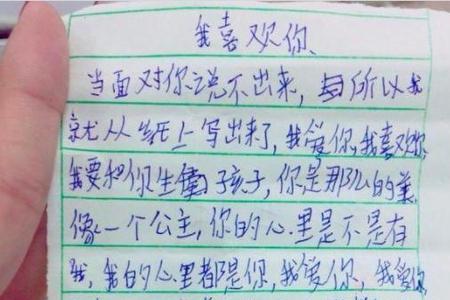 我喜欢你、
当面对你说不出来，所以我
就从纸上写出来了，我爱你，我喜欢你
我要和你生孩子，你是那么的美
像一个公主，你的心里是不是有
我，我的心里都是你，我爱你，我爱你